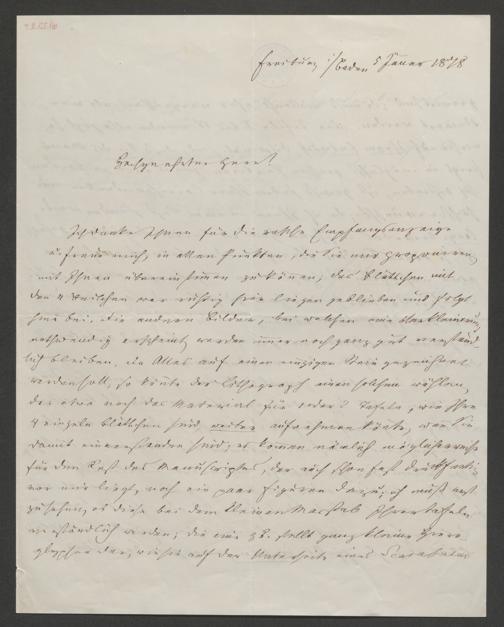 Freiburg i/Baden 5 Jänner 1878
Hochgeehrter Herr!
Ich danke Ihnen für die rasche Empfangsanzeige
u. freue mich, in allen Punkten, die Sie mir proponiren,
mit Ihnen übereinstimmen zu können; das Blättchen mit
den 4 war richtig hier liegen geblieben und folgt
hier bei. die anderen Bilder, bei welchen eine Verkleinerung
nothwendig erscheint, werden immer noch ganz gut verständ-
lich bleiben. da Alles auf einen einzigen Stein gezeichnet
werden soll, so könnte der Lithograph einen solchen wählen,
der etwa noch das Material für 1 oder 2 Tafeln, wie Ihre
4 einzeln Blättchen sind, weiter aufnehmen könnte, wenn Sie
damit einverstanden sind; es kommen nämlich möglicherweise
für den Rest des Manuscriptes, der auch schon fast druckfertig
vor mir liegt, noch ein paar Figuren dazu; ich muß erst
zusehen, ob diese bei dem kleinen Maßstab Ihrer Tafeln
verständlich werden; die eine z.B. stellt ganz kleine Hiero-
glyphen dar, wie sie auf der Unterseite eines Scarabäus